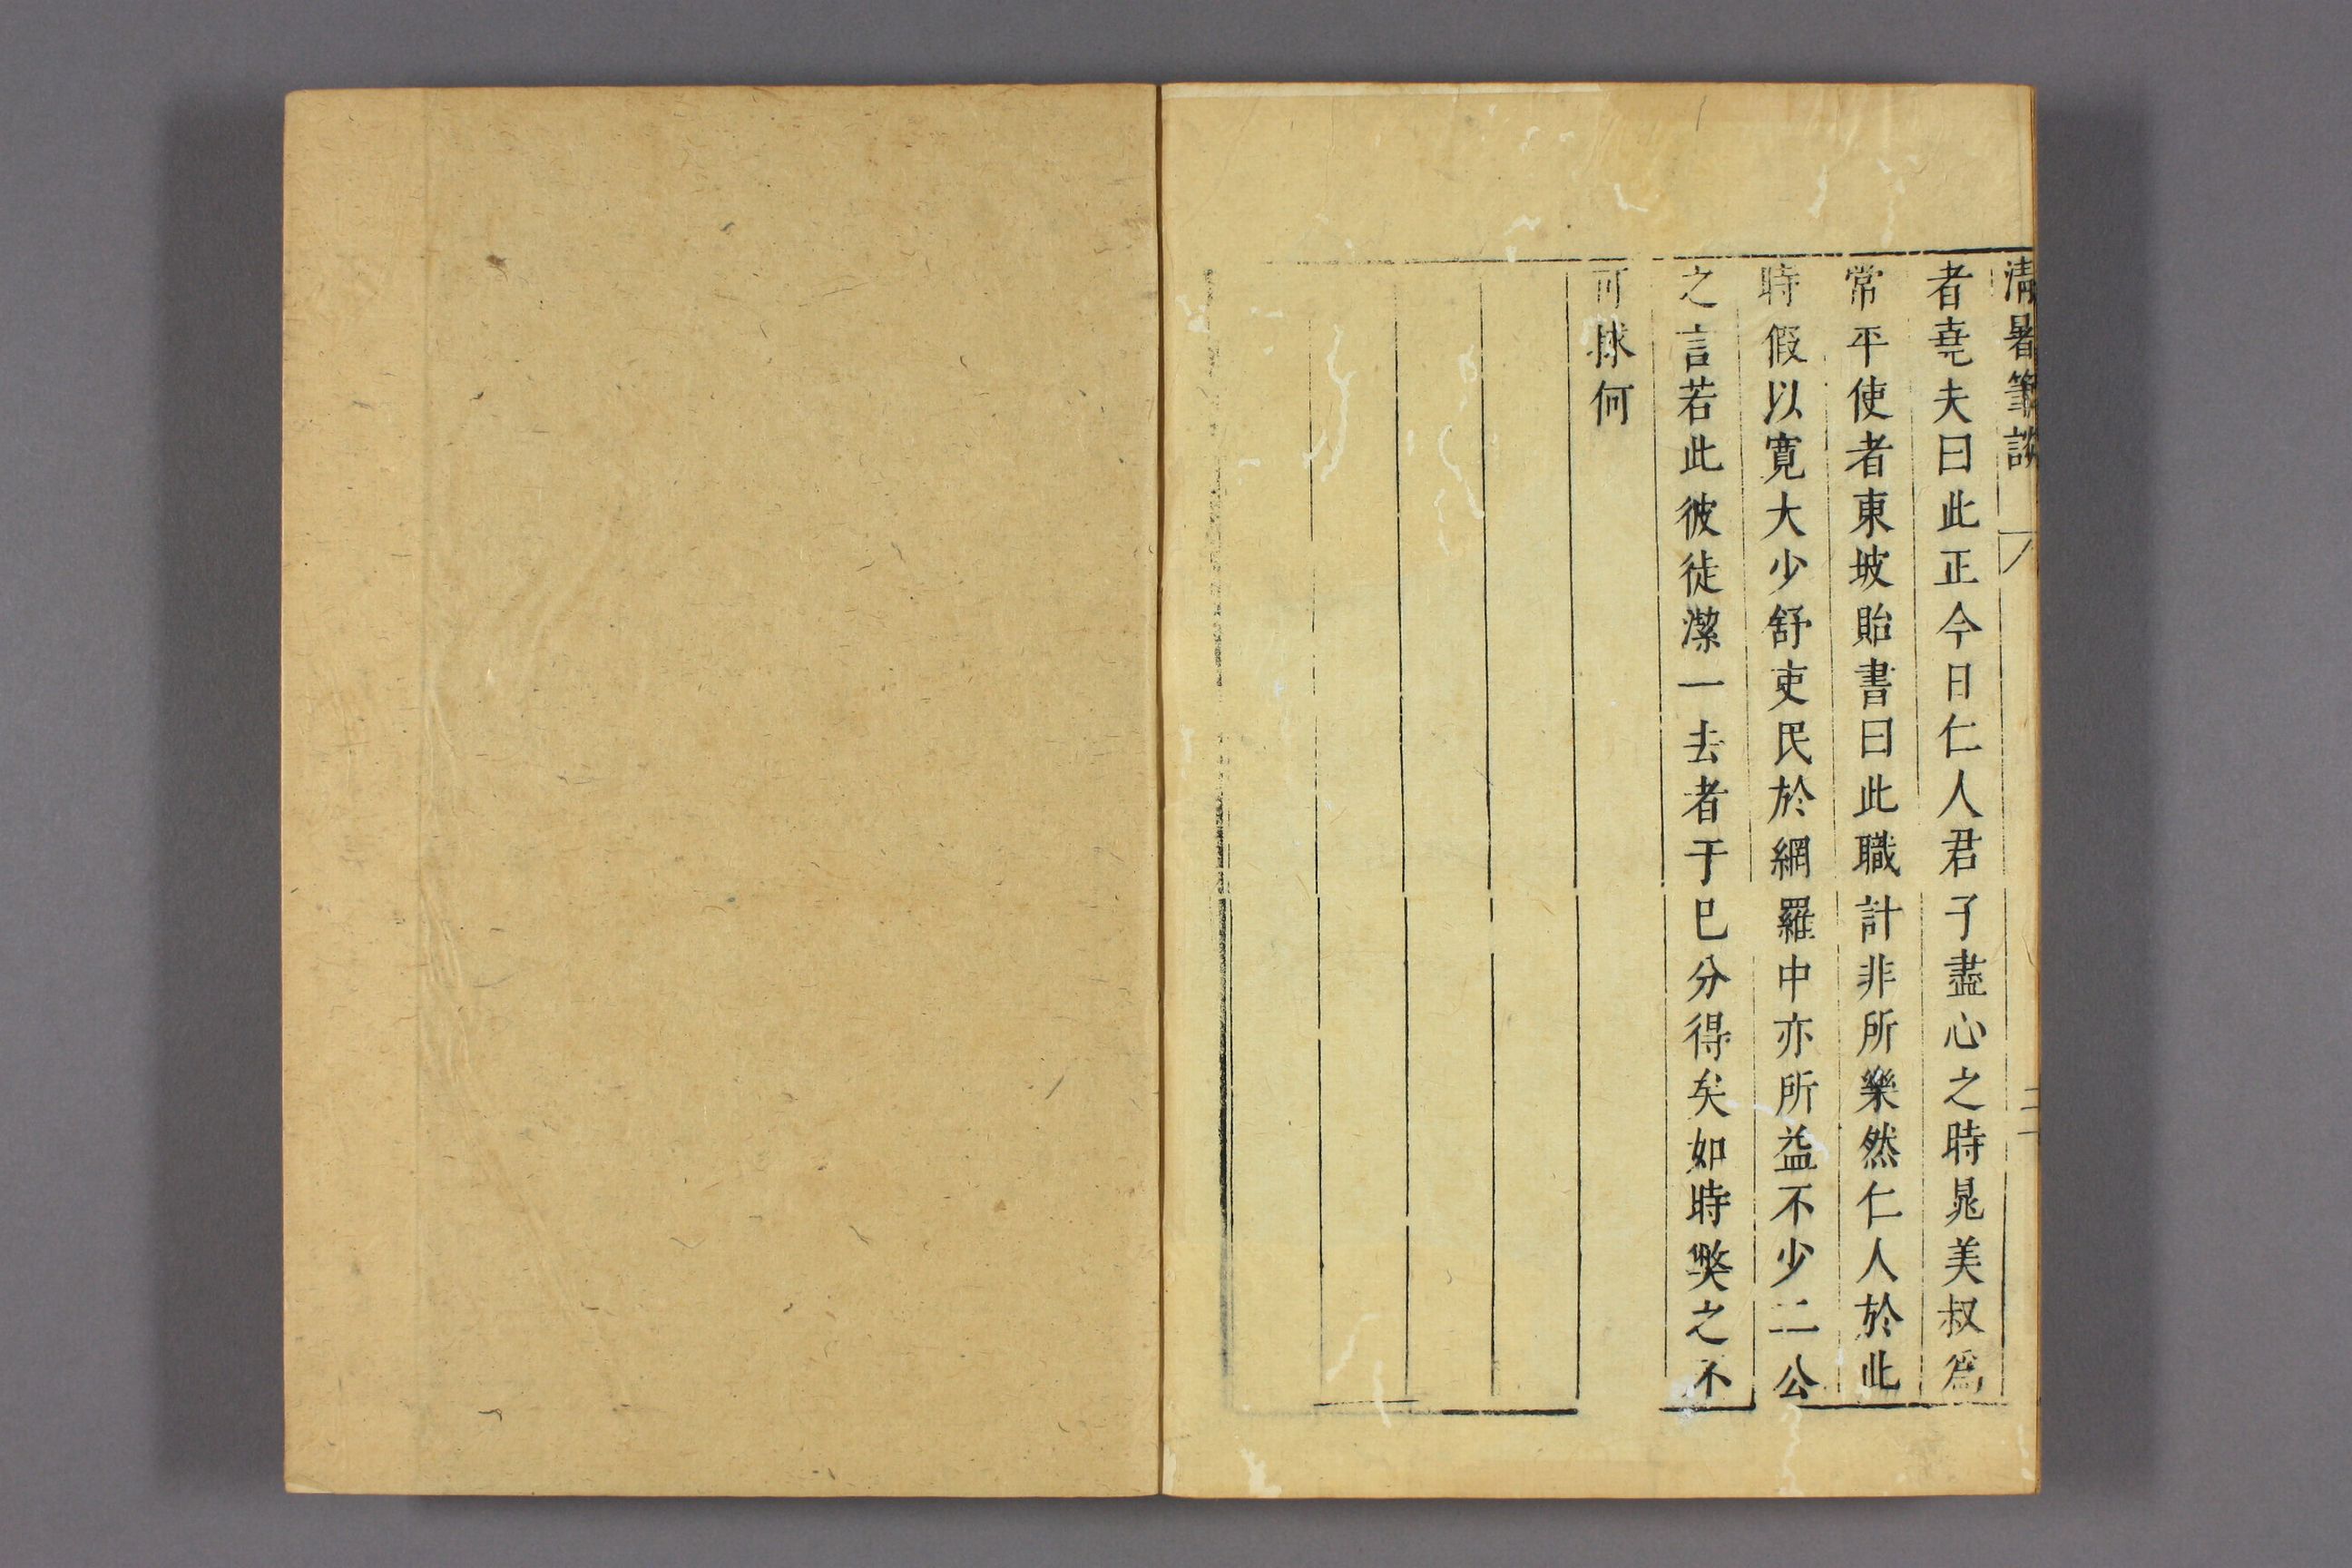 清暑筆談
者堯夫曰此正今日仁人君子盡心之時晁美叔爲
常平使者東坡貽書曰此職計非所樂然仁人於此
時假以寬大少舒吏民於網羅中亦所益不少二公
之言若此彼徒潔一去者于巳分得矣如時獘之不
可捄何